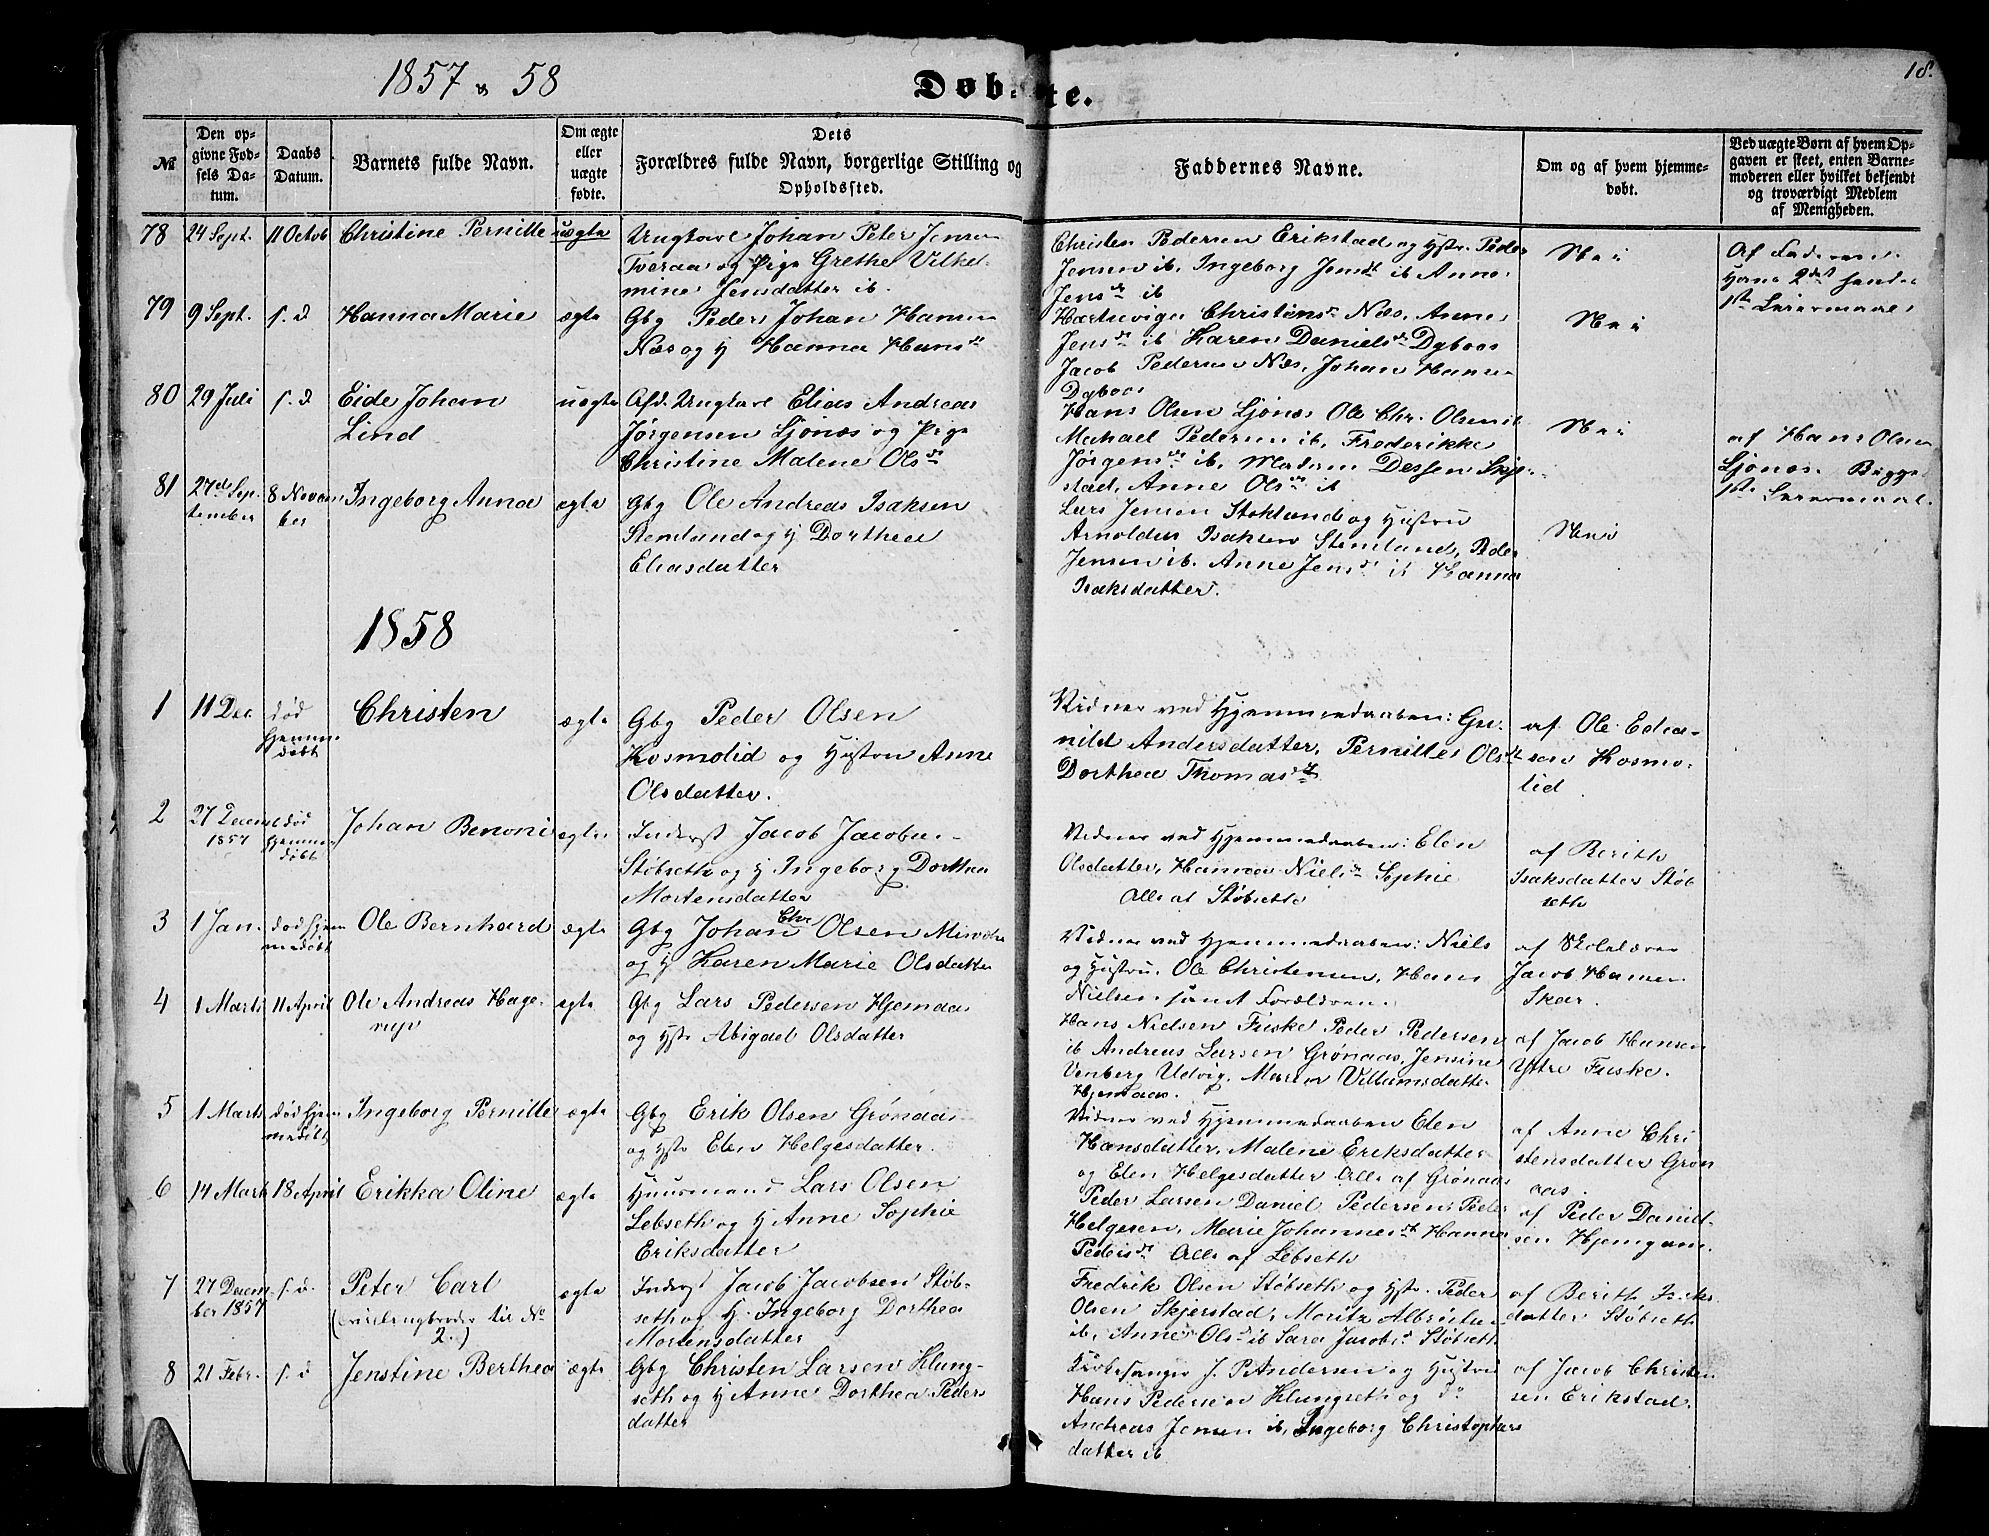 1857 & 58
Døbte.
18.
No
Den opgivne Fødsels Datum.
Daabs Datum.
Barnets fulde Navn.
Om ægte eller uægte fødte.
Dets Forældres fulde Navn, borgerlige Stilling og Opholdssted.
Faddernes Navne.
Om og af hvem hjemmedøbt.
Ved uægte Børn af hvem Opgaven er skeet, enten Barnemoderen eller hvilket bekjendt og troværdigt Medlem af Menigheden.
78 24 Sept. 11 Octob Christine Pernille uægte
Ungkarl Johan Peter Jensen
Tveraa og Pige Grethe Vilhel-
mine Jensdatter ib.
Christen Pedersen Erikstad og Hstr. Peder
Jensen ib, Ingeborg Jensdr ib Anne
Jensdr ib
Nei
Af Faderen
Hans 2det hendes
1ste Leiermaal
79 9 Sept. s. d. Hanna Marie ægte
Gbg Peder Johan Hansen
Næs og H Hanna Hansdr
Hartvig Christensen Næs, Anne
Jensdr ib Karen Danielsdr Dybvas
Jacob Pedersen Næs, Johan Hansen
Nei
80 29 Juli s. d. Eide Johan
Lind
uægte
Afd. Ungkarl Elias Andreas
Jørgensen Ljønæs og Pige
Christine Malene Olsdr
Hans Olsen Ljønæs Ole Chr. Olsen ib
Michael Pedersen ib, Frederikke
Jørgensdr ib, Madam Dessen Skjer-
stad, Anne Olsdr ib
Nei
af Hans Olsen
Ljønæs. Begges
1ste Leiermaal.
81 27de Sep-
tember
8 Novem-
ber
Ingeborg Anna ægte
Gbg Ole Andreas Isaksen
Stemland og H Dorthea
Eliasdatter
Lars Jensen Stokland og Hustru
Arnoldus Isaksen Stemland, Peder
Jensen ib. Anne Jensdr ib Hanna
Isaksdatter.
Nei
1858
1 11 Dec. død
hjemme-
døbt
Christen ægte
Gbg Peder Olsen
Kosmolid og Hustru Anne
Olsdatter.
Vidner ved Hjemmedaaben: Gu-
nild Andersdatter, Pernille Olsdr
Dorthea Thomasdr
af Ole Edia-
sen Kosmo-
lid
2 27 Decemb
1857
død
Hjemme-
døbt
Johan Benoni ægte
Inderst Jacob Jacobsen
Støbseth og H Ingeborg Dorthea
Mortensdatter
Vidner ved Hjemmedaaben: Elen
Olsdatter, Hanna Nielsdr Sophie
Alle at Støbseth
af Berith
Isaksdatter Støb
seth
3 1 Jan. død hjem
medøbt
Ole Bernhard ægte
Gbg Johan Chr. Olsen Misvær
og H Karen Marie Olsdatter
Vidner ved Hjemmedaaben: Niels
og Hustru, Ole Christensen, Hans
Nielsen samt Forældrene.
af Skolelærer
Jacob Hansen
Skar.
4 1 Marts 11 April Ole Andreas Hage-
rup
ægte
Gbg Lars Pedersen Hjemaas
og Hstr Abigael Olsdatter
Hans Nielsen Fuske Peder Pedersen
ib Andreas Larsen Grønaas, Jensine
Venberg Udvig, Maren Villumsdatter
Hjemaas.
af Jacob Hansen
Yttre Fuske.
5 1 Marts død hjem
medøbt
Ingeborg Pernille ægte
Gbg Erik Olsen Grønaas
og Hstr Elen Helgesdatter.
Vidner ved Hjemmedaaben Elen
Hansdatter, Malene Eriksdatter
og Elen Helgesdatter Alle af Grønaas
af Anne Chri
stensdatter Grøn
aas.
6 14 Marts 18 April Erikka Oline ægte
Huusmand Lars Olsen
Lebseth og H Anne Sophie
Eriksdatter
Peder Larsen Daniel Pedersen, Peder
Helgesen, Marie Johannesdr Hanna
Pedersdr Alle af Lebseth
af Peder Daniel-
sen Hjemgam.
7 27 Decem-
ber 1857
s. d. Peter Carl
(Tvillingbroder til No
2.)
ægte
Inderst Jacob Jacobsen Støb-
seth og H. Ingeborg Dorthea
Mortensdatter
Fredrik Olsen Støbseth og Hstr. Peder
Olsen Skjerstad, Moritz Albrigtsen
ib, Anne Olsdr ib Sara Jacobsdr Støbseth
af Berith Isaks-
datter Støbseth
8 21 Febr. s. d Jenstine Berthea ægte
Gbg Christen Larsen Klung-
seth og H Anne Dorthea Peders
datter
Kirkesanger J. P. Andersen og Hustru
Hans Pedersen Klungset og do
Andreas Jensen ib, Ingeborg Christophers
datter ib
af Jacob Christen
sen Erikstad.